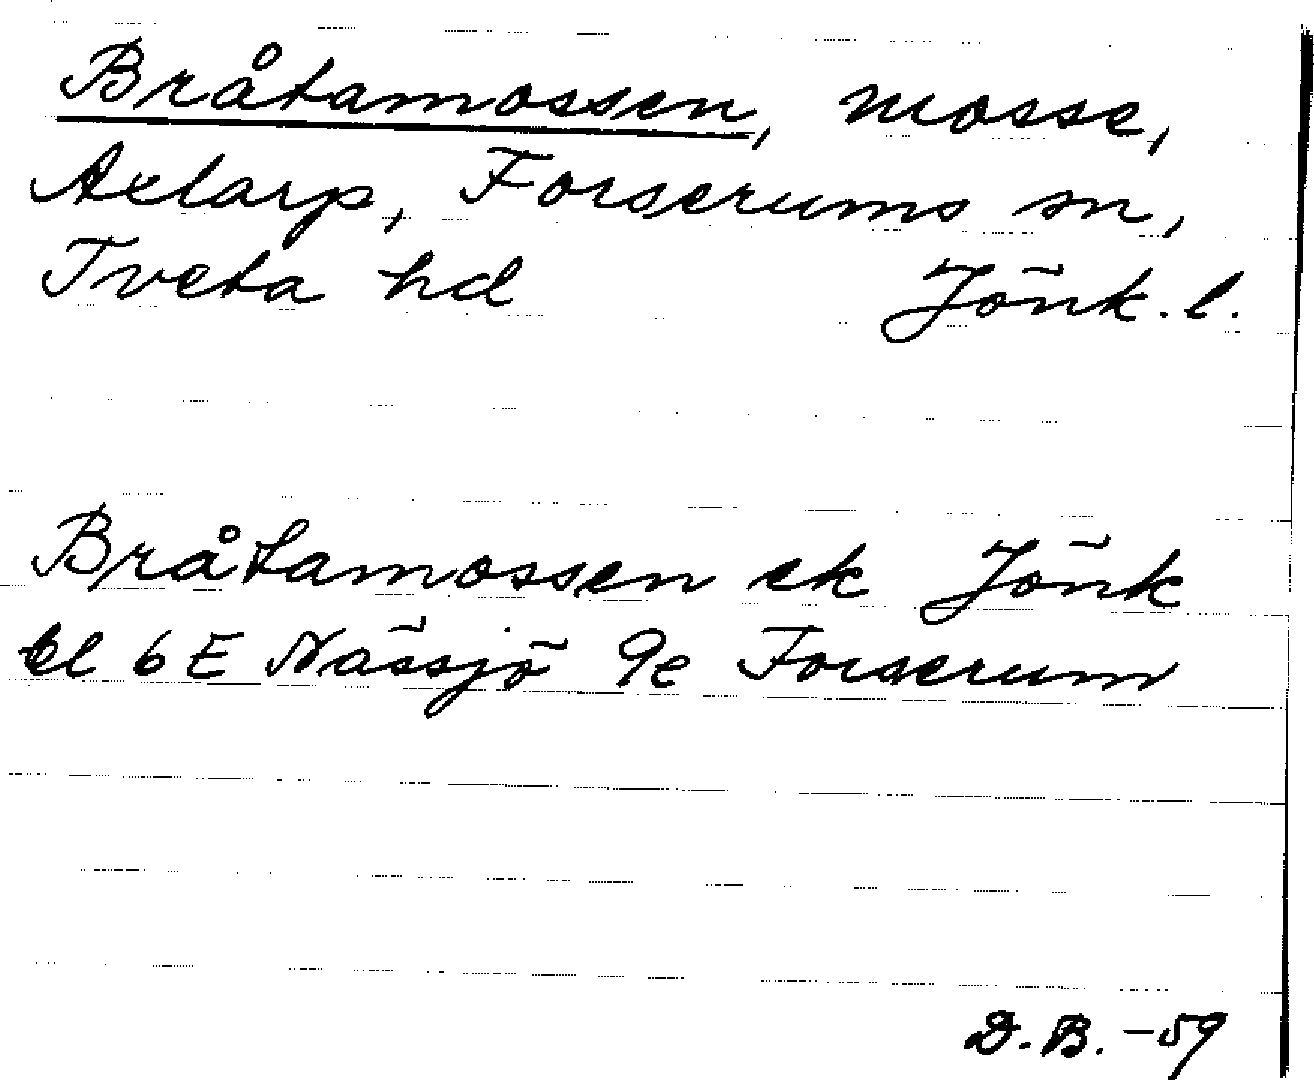 Bråtamossen, mosse,
Axlarp, Forserums sn,
Tveta hd Jönk. l.
Bråtamossen ek Jönk
bl 6 E Nässjö 9e Forserum
D. B. -59